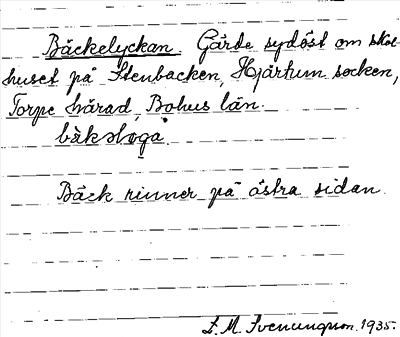 Bäckelyckan. Gärde sydöst om skol-
huset på Stenbacken, Hjärtum socken,
Torpe härad, Bohus län.
Bäck rinner på östra sidan.
L. M. Svenungsson. 1935.